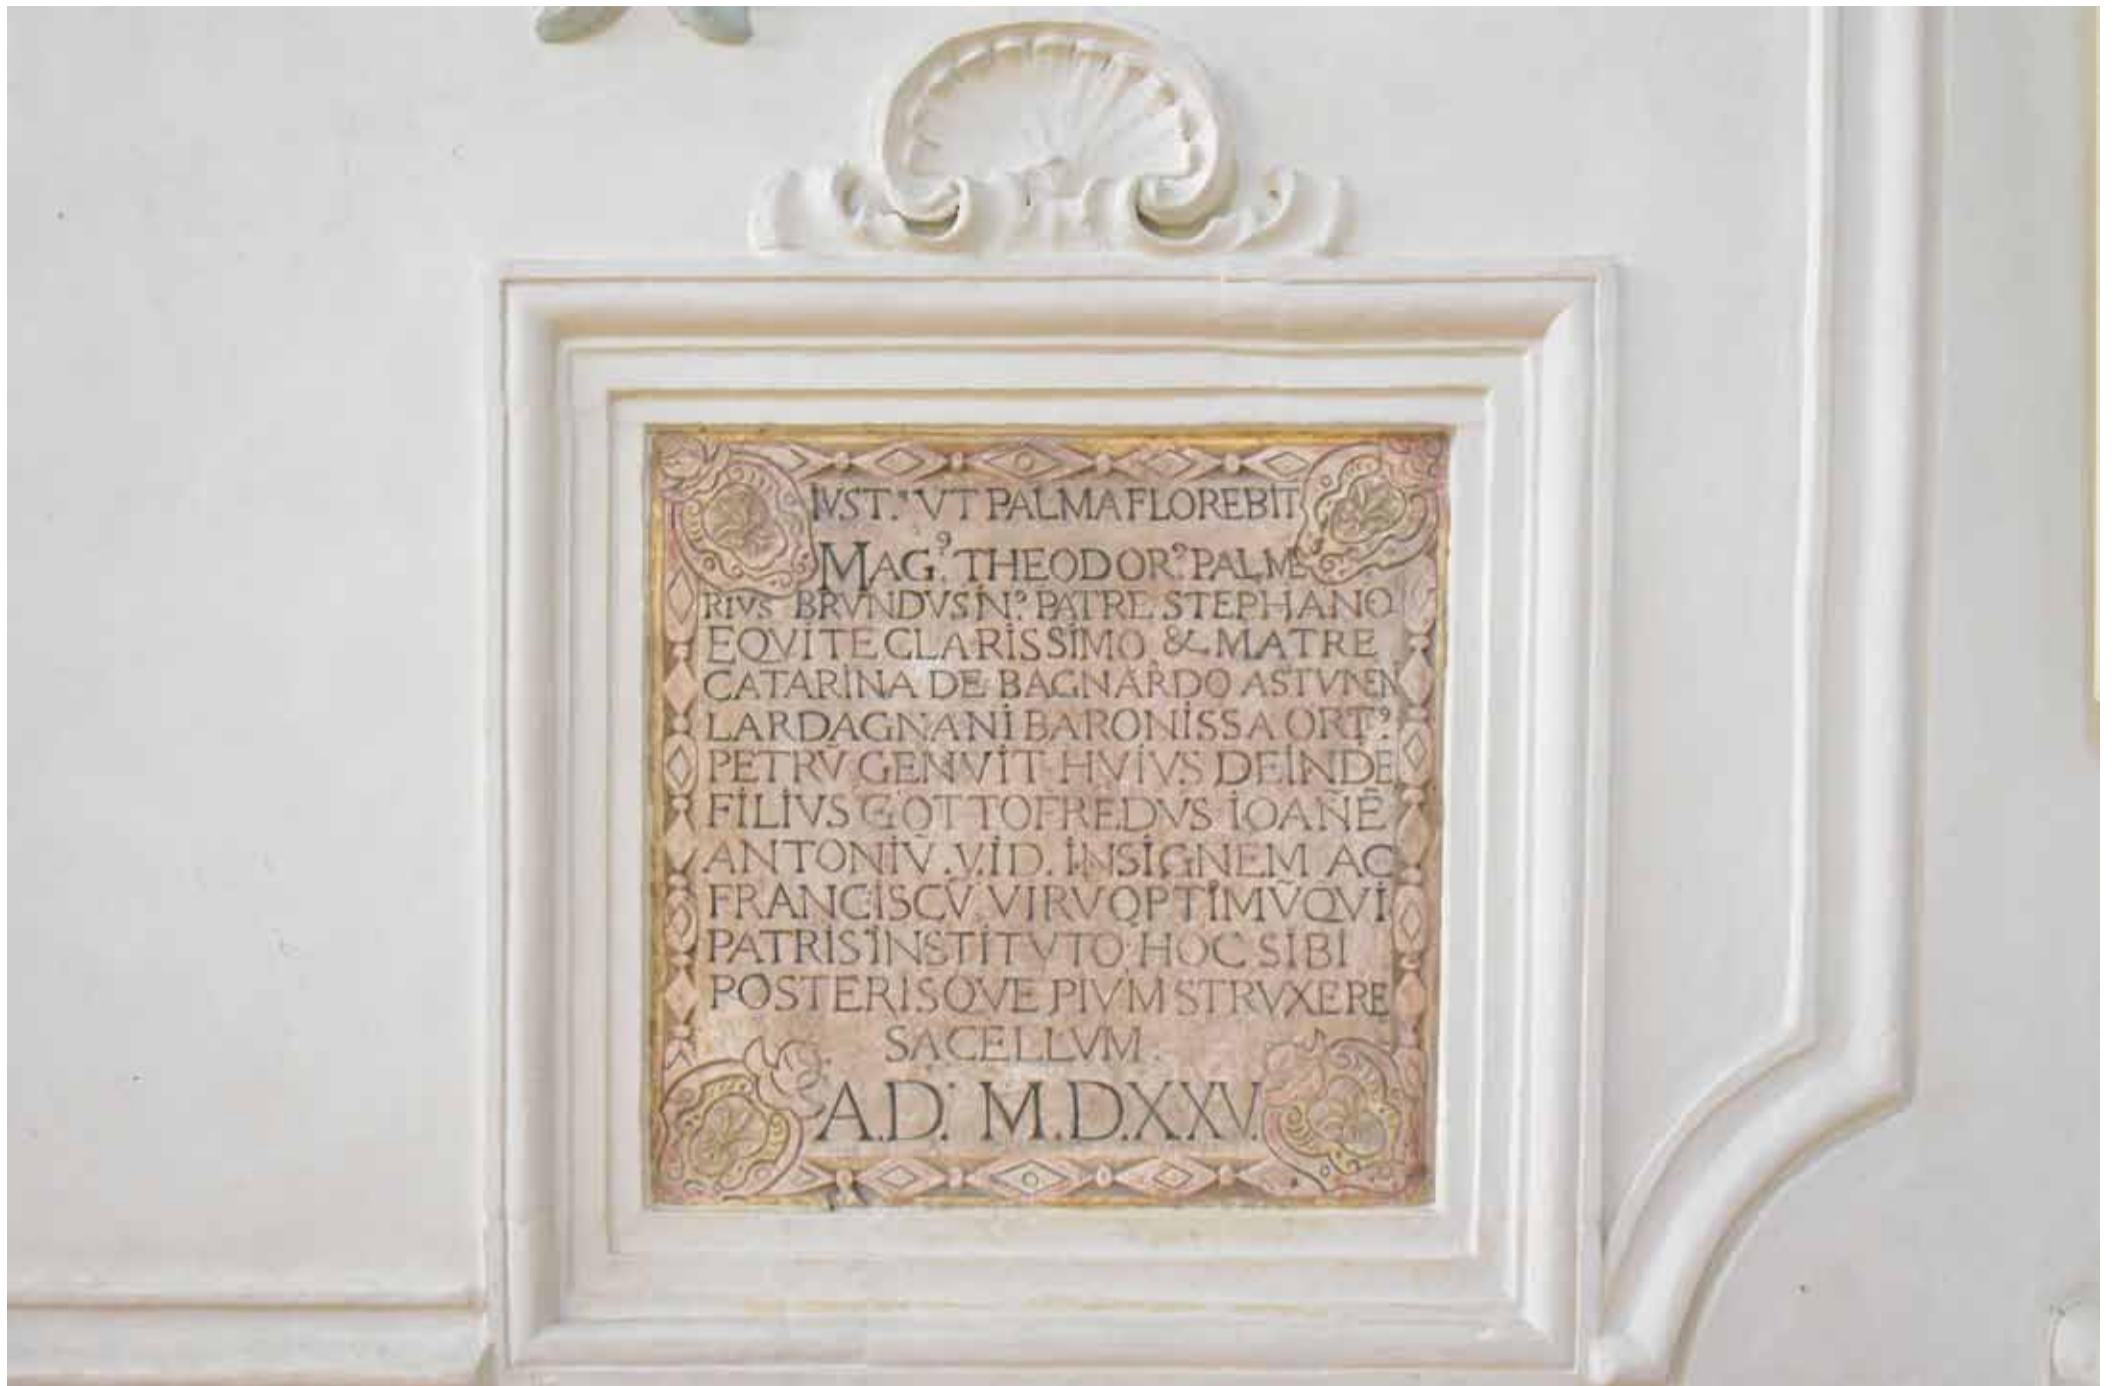 IVST.ˢ VT PALMA FLOREBIT
MAG.⁹ THEODOR.⁹ PALME
RIVS BRVNDVSIN.⁹ PATRE STEPHANO
EQVITE CLARISSIMO & MATRE
CATARINA DE BAGNARDO ASTVNEN
LARDAGNANI BARONISSA ORT.⁹
PETRV̄ GENVIT HVIVS DEINDE
FILIVS GOTTOFREDVS IOAN̄Ē
ANTONIV̄. V.I.D. INSIGNEM AC
FRANCISCV̄ VIRV OPTIMV̄ QVI
PATRIS INSTITVTO HOC SIBI
POSTERISQVE PIVM STRVXERE
SACELLVM.
A.D. M.D.XXV.